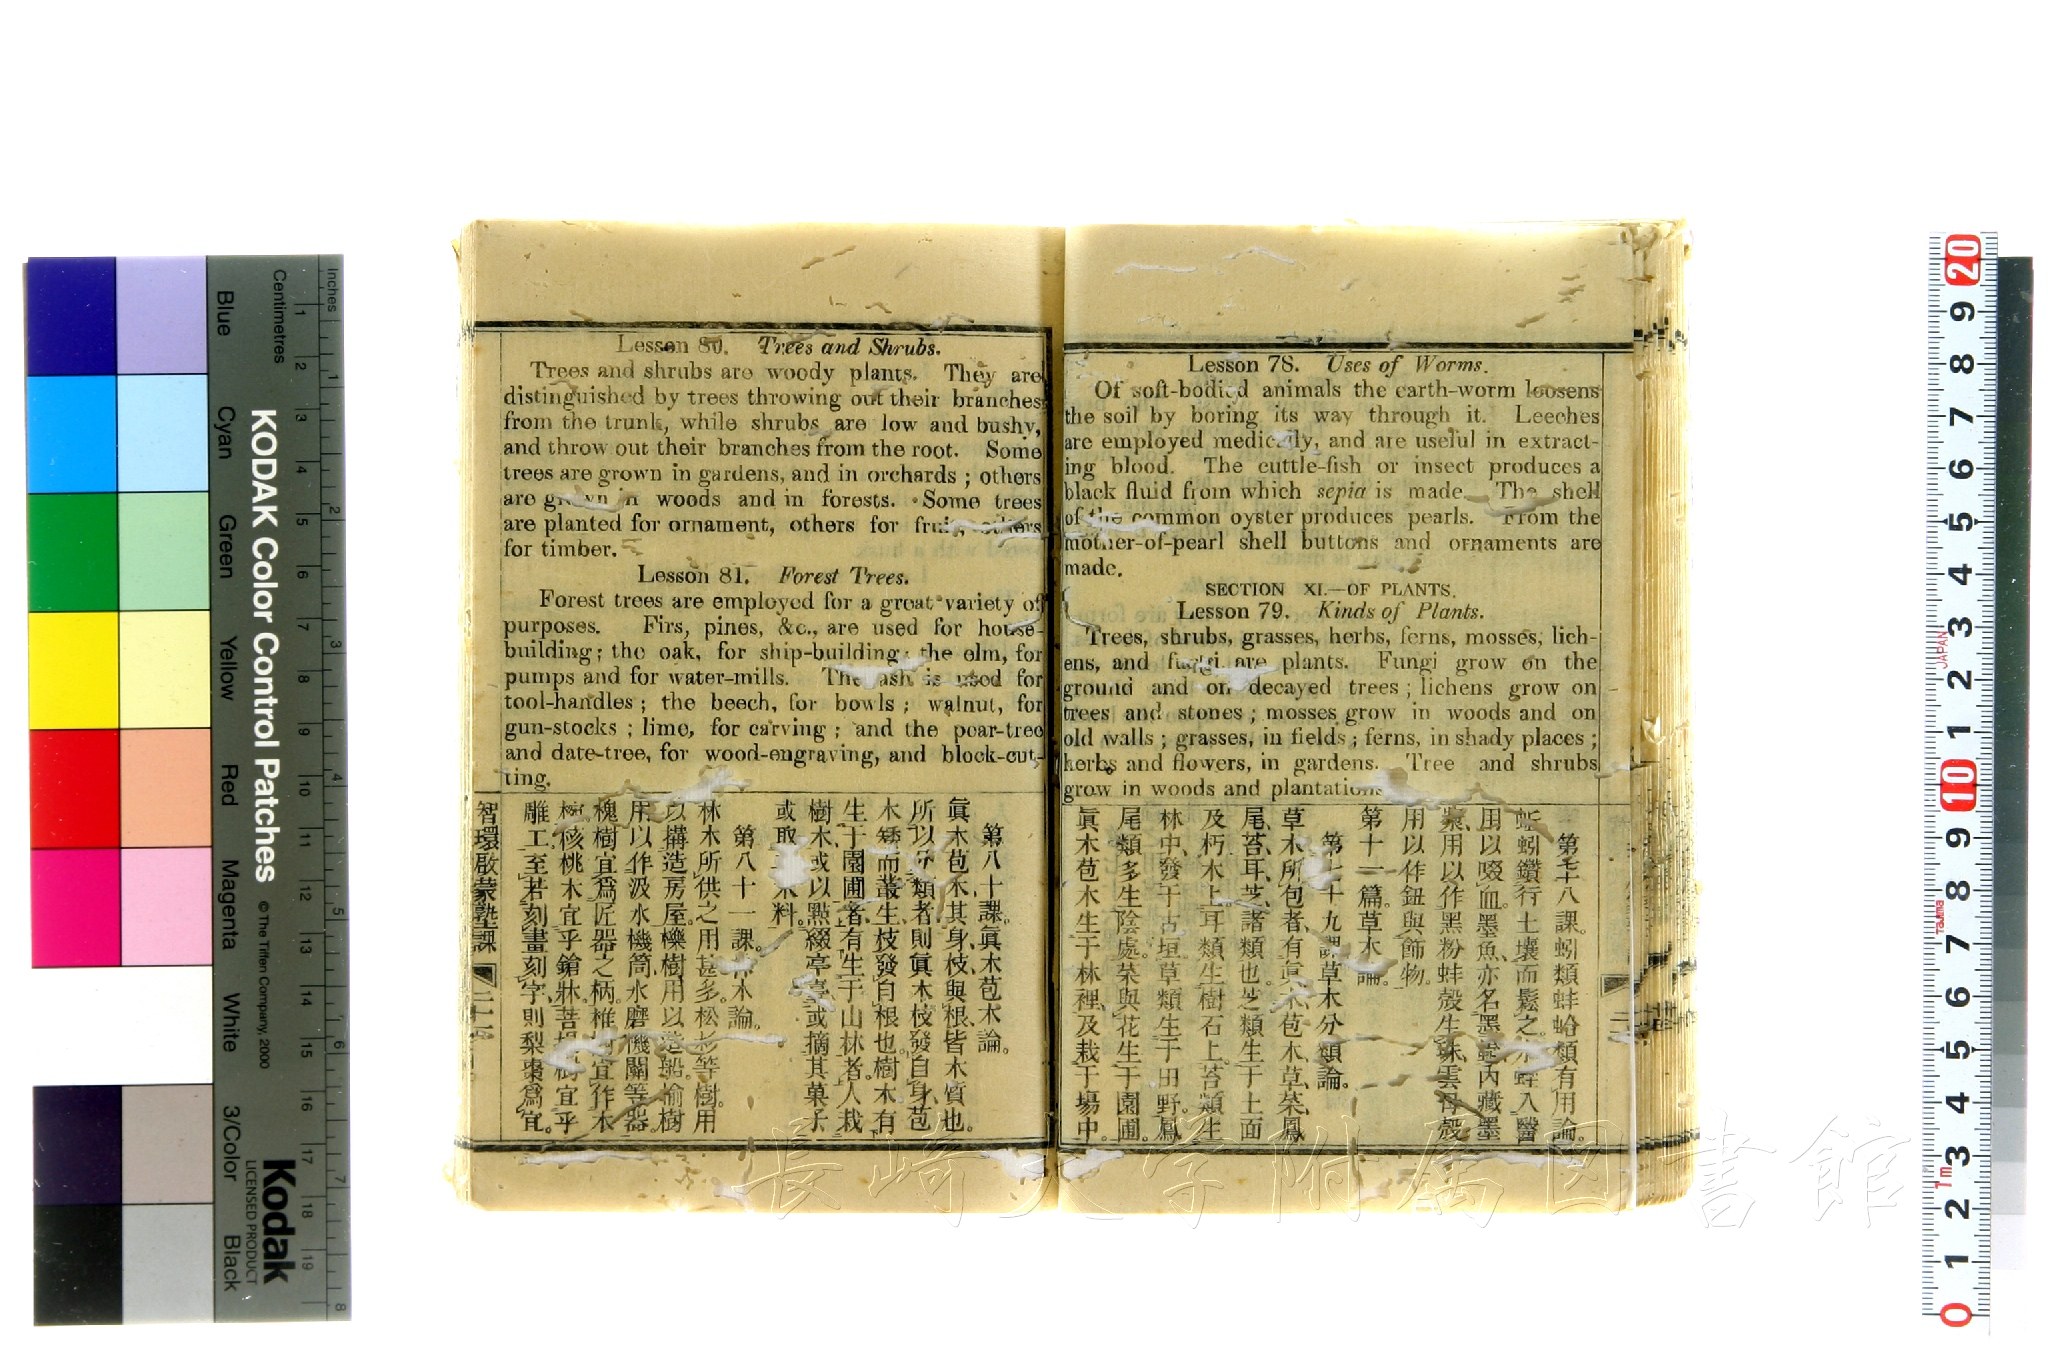 Lesson 78. Uses of Worms.
Of soft-bodied animals the earth-worm loosens
the soil by boring its way through it. Leeches
are employed medically, and are useful in extract-
ing blood. The cuttle-fish or insect produces a
black fluid from which sepia is made. The shell
of the common oyster produces pearls. From the
mother-of-pearl shell buttons and ornaments are
made.
SECTION XI.—OF PLANTS.
Lesson 79. Kinds of Plants.
Trees, shrubs, grasses, herbs, ferns, mosses, lich-
ens, and fungi are plants. Fungi grow on the
ground and on decayed trees; lichens grow on
trees and stones; mosses grow in woods and on
old walls; grasses, in fields; ferns, in shady places;
herbs and flowers, in gardens. Tree and shrubs
grow in woods and plantations.
第七十八課。蚓類蚌蛤類有用論。
蚯蚓鑽行土壤而鬆之。水蛭入醫
用以啜血。墨魚、亦名墨 內藏墨
用以作黑粉蚌殼生珠、雲母殼
用以作鈕與飾物。
第十一篇。草木論。
第七十九課草木分類論。
草木所包者、有眞木、苞木、草、菜、鳳
尾、苔、耳、芝、諸類也。芝類生于土面
及朽木上耳類生樹石上。苔類生
林中、發于古垣草類生于田野。鳳
尾類多生陰處。菜與花生于園圃。
眞木苞木生于林裡、及栽于場中。
Lesson 80. Trees and Shrubs.
Trees and shrubs are woody plants. They are
distinguished by trees throwing out their branches
from the trunk, while shrubs are low and bushy,
and throw out their branches from the root. Some
trees are grown in gardens, and in orchards; others
are grown in woods and in forests. Some trees
are planted for ornament, others for fruit, others
for timber.
Lesson 81. Forest Trees.
Forest trees are employed for a great variety of
purposes. Firs, pines, &c., are used for house-
building; the oak, for ship-building; the elm, for
pumps and for water-mills. The ash is used for
tool-handles; the beech, for bowls; walnut, for
gun-stocks; lime, for carving; and the pear-tree
and date-tree, for wood-engraving, and block-cut-
ting.
第八十課。眞木苞木論。
眞木苞木、其身、枝、與根、皆木質也。
所以分類者、則眞木枝發自身、苞
木矮而叢生、枝發自根也。樹木有
生于園圃者、有生于山林者。人栽
樹木、或以點綴亭臺、或摘其菓子
或取 木料。
第八十一課。林木論。
林木所供之用甚多。松杉等樹。用
以搆造房屋。櫟樹用以造船。榆樹
用以作汲水機筒、水磨機關等器。
槐樹宜爲匠器之柄。椎樹宜作木
椀核桃木宜乎鎗牀。菩提樹宜乎
雕工、至若刻畫刻字、則梨棗爲宜。
智環啟蒙塾課
KODAK Color Control Patches
© The Tiffen Company, 2000
Kodak
LICENSED PRODUCT
Inches
Centimetres
Blue
Cyan
Green
Yellow
Red
Magenta
White
3/Color
Black
1 2 3 4 5 6 7 8 9 10 11 12 13 14 15 16 17 18 19
1 2 3 4 5 6 7 8
20 9 8 7 6 5 4 3 2 1 10 9 8 7 6 5 4 3 2 1 0
JAPAN
Tajima
1m
長崎大学附属図書館